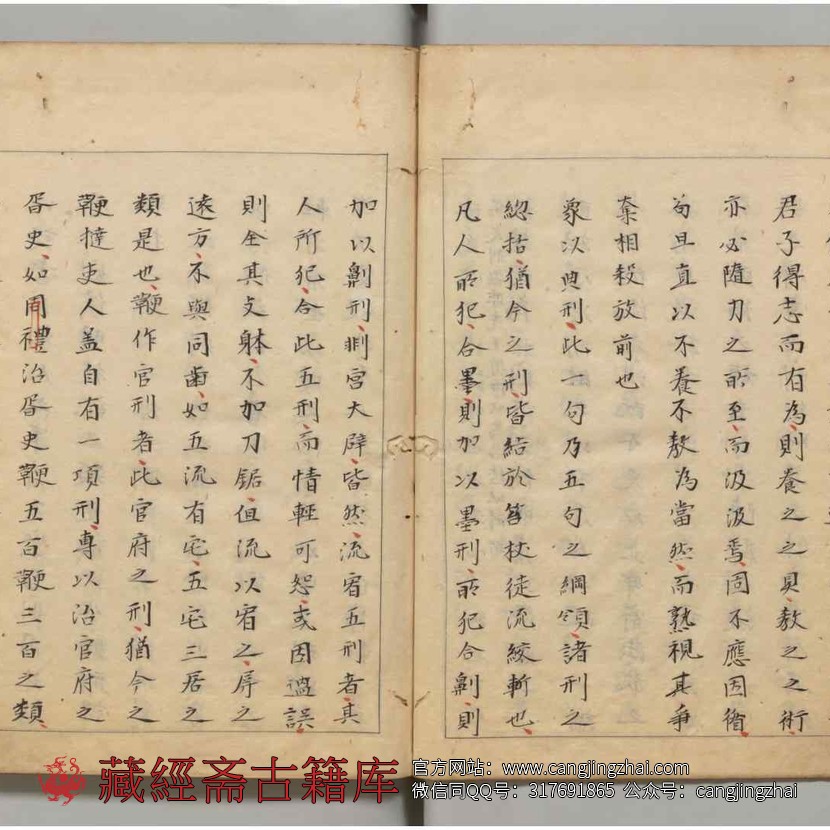 君子得志而有為則養之之具教之之術
亦必隨力之所至而汲汲焉固不應因循
苟且直以不養不教為當然而熟視其爭
奪相殺放前也
象以典刑此一句乃五句之綱領諸刑之
緫括猶今之刑皆結於笞杖徒流絞斬也
凡人所犯合墨則加以墨刑所犯合劓則
加以劓刑剕宮大辟皆然流宥五刑者其
人所犯合此五刑而情輕可恕或因過誤
則全其支躰不加刀鋸但流以宥之屏之
逺方不與同齒如五流有宅五宅三居之
類是也鞭作官刑者此官府之刑猶今之
鞭撻吏人盖自有一項刑專以治官府之
胥史如周禮治胥史鞭五百鞭三百之類
藏經斋古籍库
官方网站：www.cangjingzhai.com
微信同QQ号：317691865 公众号：cangjingzhai